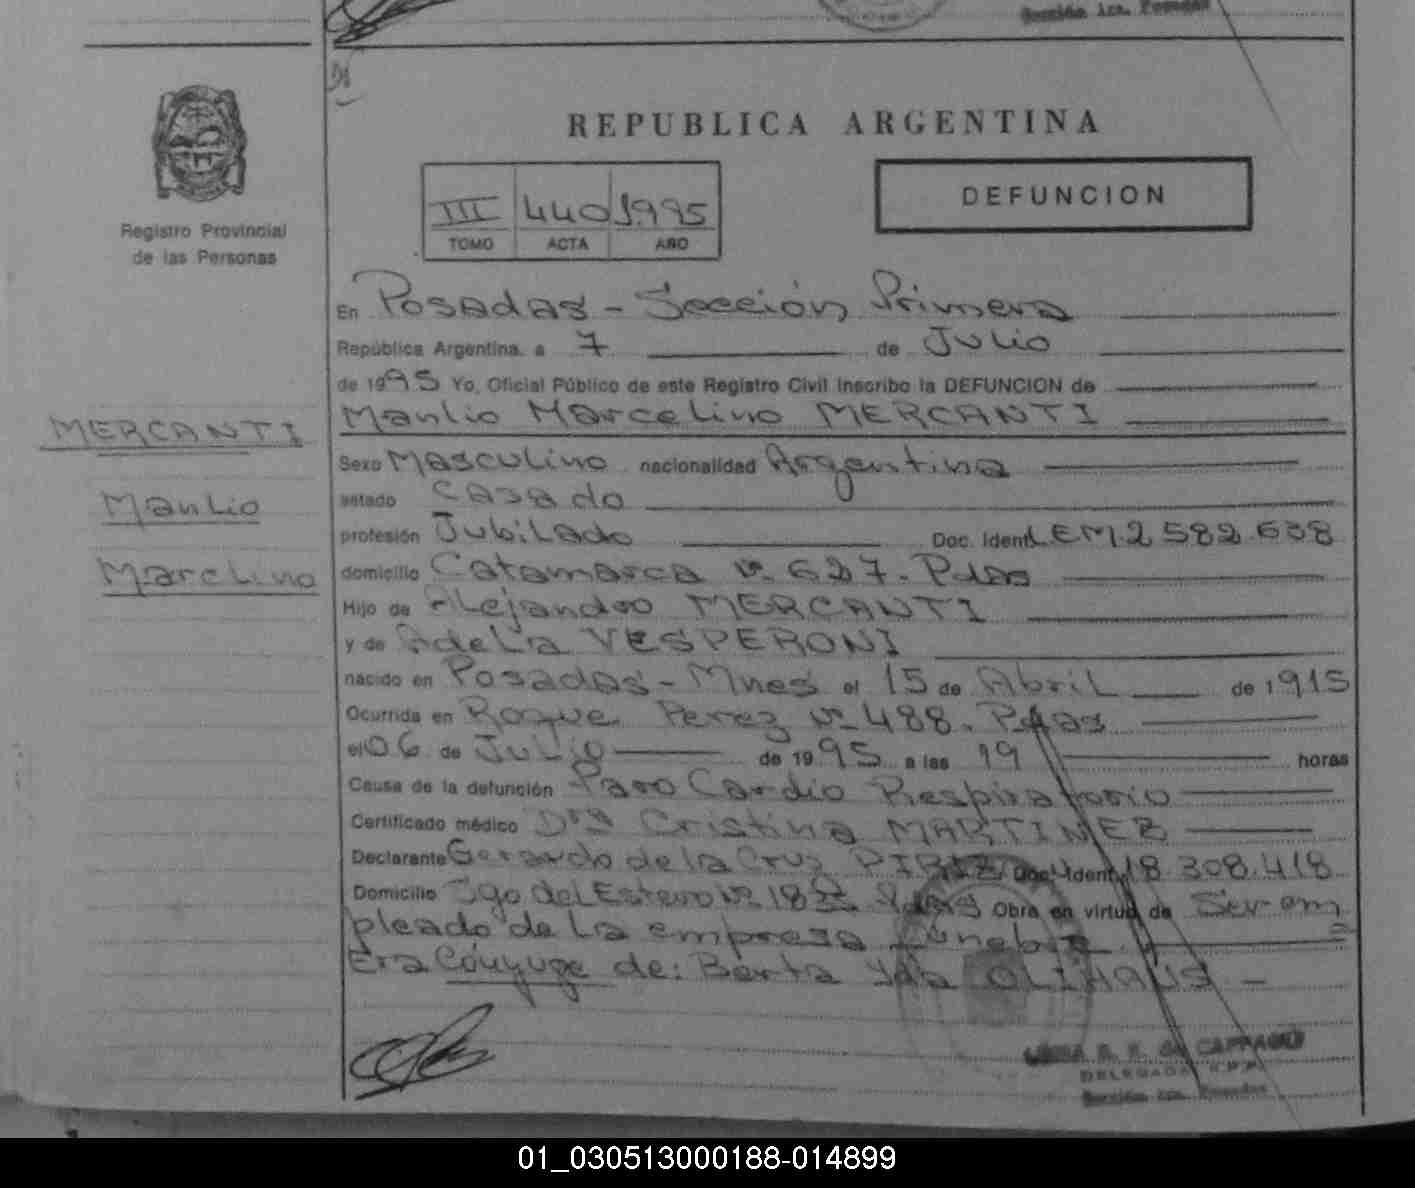 Sección 1ra. Posadas
REPUBLICA ARGENTINA
DEFUNCION
III 440 1995
TOMO ACTA AÑO
Registro Provincial
de las Personas
En Posadas - Sección Primera
República Argentina, a 7 de Julio
de 1995 Yo, Oficial Público de este Registro Civil inscribo la DEFUNCION de
Manlio Marcelino MERCANTI
MERCANTI
Manlio
Marclino
Sexo Masculino nacionalidad Argentina
estado Casado
profesión Jubilado Doc. Ident. LEM. 2 582.638
domicilio Catamarca Nº 627. Pdas
Hijo de Alejandro MERCANTI
y de Adela VESPERONI
nacido en Posadas - Mnes el 15 de Abril de 1915
Ocurrida en Roque Perez Nº 488. Pdas
el 06 de Julio de 1995 a las 19 horas
Causa de la defunción Paro Cardio Respiratorio
Certificado médico Drª Cristina MARTINEZ
Declarante Gerardo de la Cruz Doc. Ident. 18.308.418
Domicilio Sgo del Estero Nº Pdas Obra en virtud de Ser em
pleado de La empresa fúnebre
Era Cónyuge de: Berta Yda OLIHAUS -
DELEGADA R.P.P.
Sección 1ra. Posadas
01_030513000188-014899